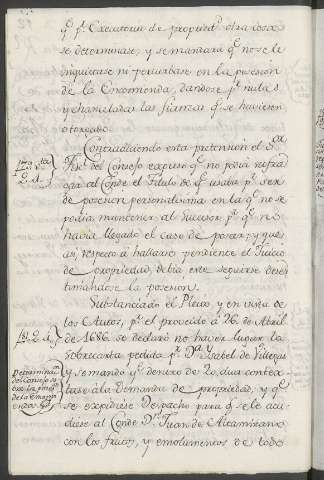 y pr. Executoria de propiedad otra cosa
se determinase, y se mandara qe. no se le
inquietase ni perturbase en la posesion
de la Encomienda, dandose pr. nulas,
y chanceladas las fianzas qe. se huviesen
otorgado.
Contradiciendo esta pretension el Sor.
Fiscl. del Consejo expuso qe. no podia sufra-
gar al Conde el Titulo de qe. usaba pr. ser
de posesion personalisima en la qe. no se
podia mantener al Succesor pr. qe. no
havia llegado el caso de poseer, y que
asi, respecto á hallarse pendiente el Juicio
de propiedad, debia este seguirse deses-
timandose la posesion.
Substanciado el Pleito, y en vista de
los Autos, pr. el proveido á 26. de Abril
de 1686. se declaró no haver lugar la
sobrecarta pedida pr. Da. Ysabel de Villegas
y se mandó qe. dentro de 20. dias contes-
tase á la Demanda de propiedad, y qe.
se expidiese Despacho para qe. se le acu-
diese al Conde Dn. Juan de Altamirano
con los frutos, y emolumentos de todo
Determinacion
del Consejo so-
bre la poses.
de la Encomi-
enda